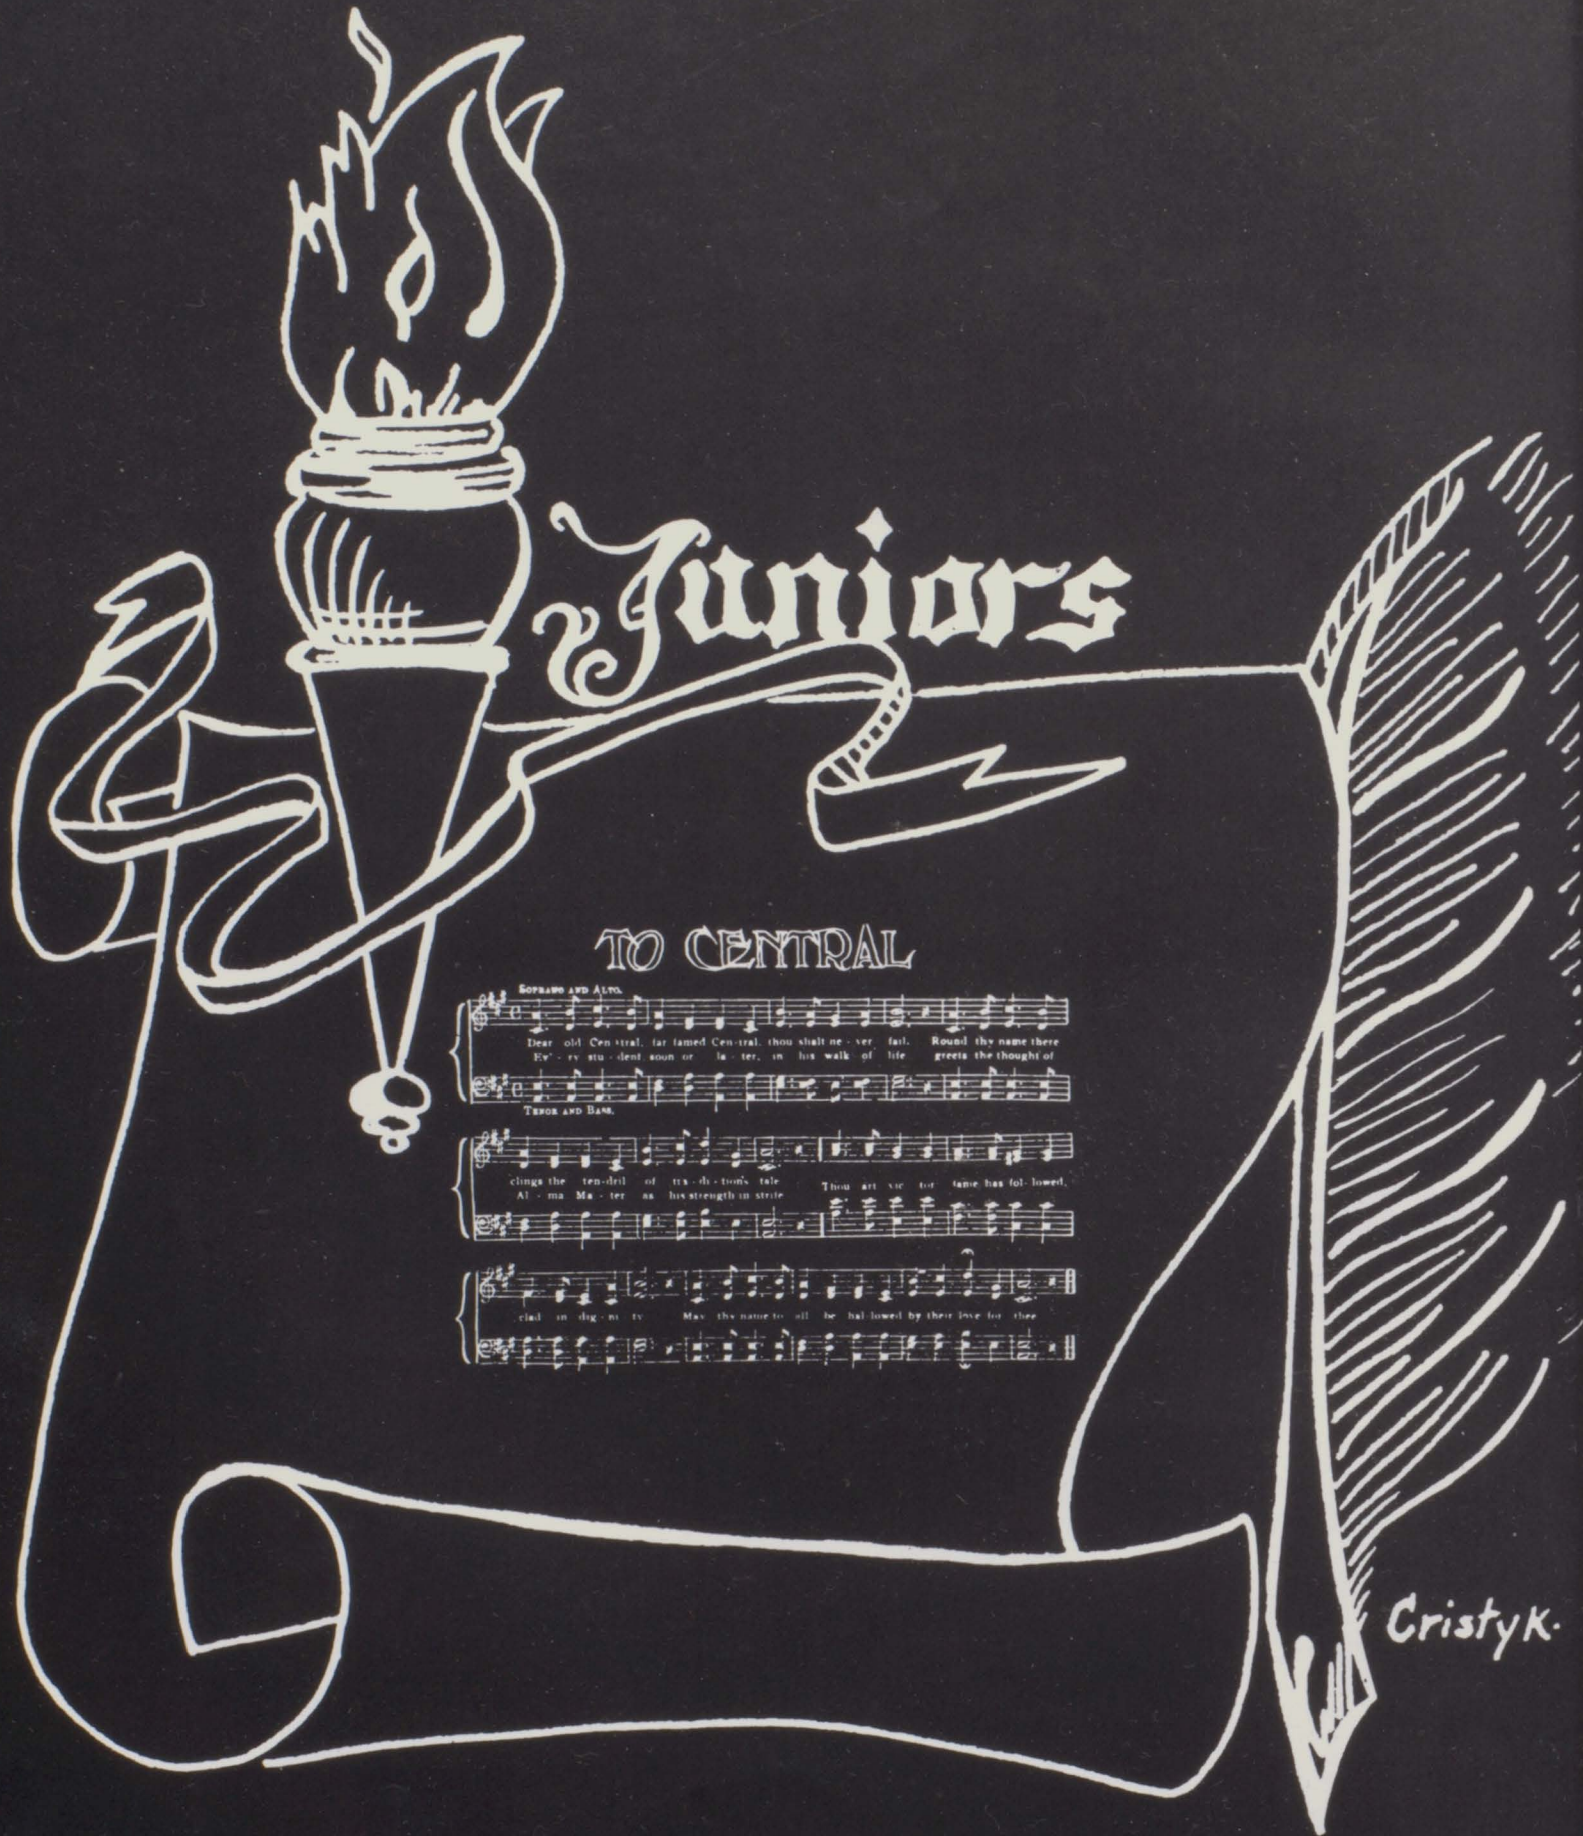 Juniors
TO CENTRAL
SOPRANO AND ALTO.
Dear old Cen-tral, far famed Cen-tral, thou shalt ne-ver fail. Round thy name there
Ev'-ry stu-dent soon or la-ter, in his walk of life greets the thought of
TENOR AND BASS.
clings the ten-dril of tra-di-tion's tale Thou art vic-tor fame has fol-lowed,
Al-ma Ma-ter as his strength in strife
clad in dig-ni-ty May thy name to all be hal-lowed by their love for thee
Cristy K.